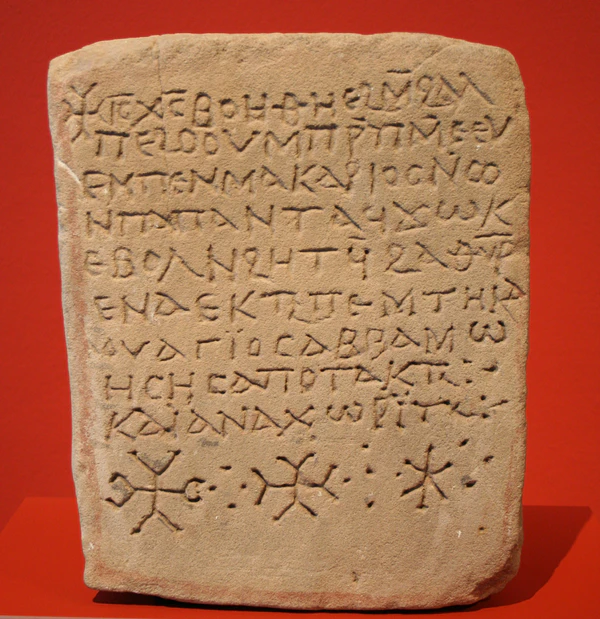 ⲓ̅ⲥ̅ ⲭ̅ⲥ̅ ⲃⲟⲏ·ⲑ·ⲏ ⲉϩⲙ̅ϩⲁⲗ
ⲡⲉϩⲟⲟⲩ ⲙⲡⲣ̅ⲡⲙ̅ⲉⲉⲩ
ⲉⲙⲡⲉⲛⲙⲁⲕⲁⲣⲓⲟⲥ ⲛ̅ⲥⲟ
ⲛⲡⲁⲡⲁ ⲛⲧⲁϥϫⲱⲕ
ⲉⲃⲟⲗ ⲛϩⲏⲧϥ̅ ϩⲁⲑⲩⲣ̅
ⲉⲛⲇⲉⲕⲧ ⲡⲉⲙⲧⲏ
ⲟⲩⲁⲅⲓ̈ⲟⲥ ⲁⲃⲃⲁ ⲙⲱ
ⲏⲥⲏⲥ ⲁⲡⲟⲧⲁⲕⲧ
ⲕⲁⲓ ⲁⲛⲁⲭⲱⲣⲓ̈ⲧ